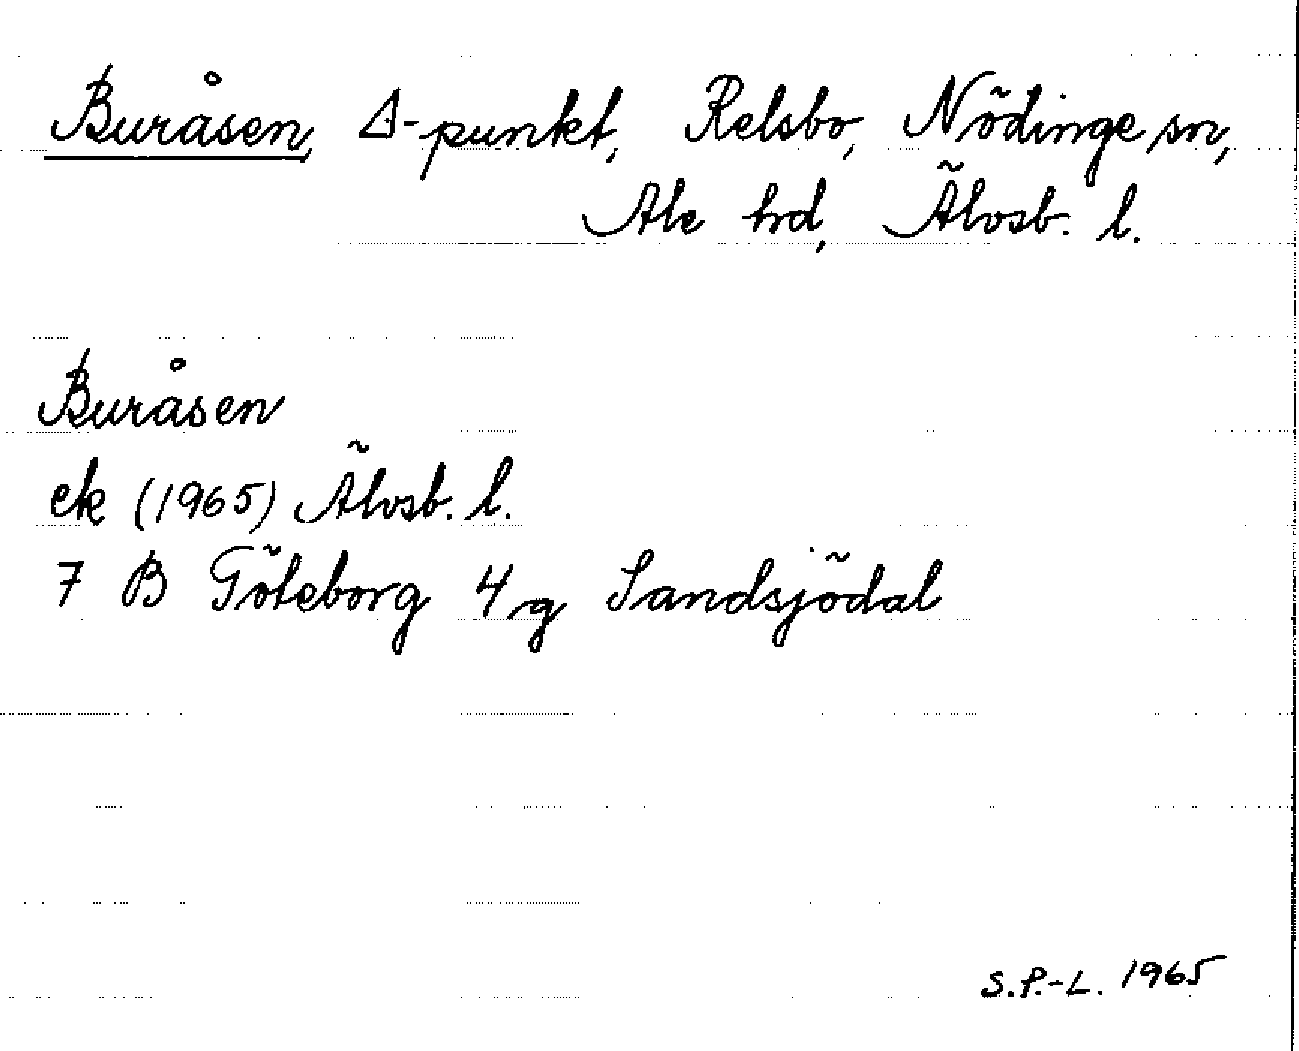 Buråsen, Δ-punkt, Relsbo, Nödinge sn,
Ale hrd, Älvsb. l.
Buråsen
ek (1965) Älvsb. l.
7 B Göteborg 4 g Sandsjödal
S.P.-L. 1965